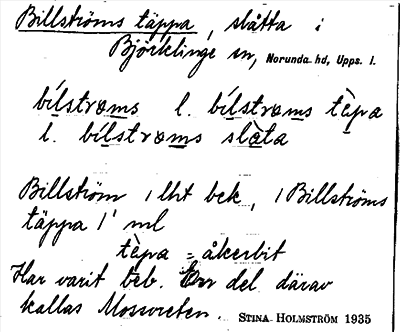 Billströms täppa, slåtta i
Björklinge sn, Norunda hd, Upps. l.
bílstroms l. bílstroms tèpa
l. bílstroms slàta
Billström, lht bek, Billströms
täppa ml
tèpa = åkerbit
Har varit beb. En del därav
kallas Mossvreten. STINA HOLMSTRÖM 1935